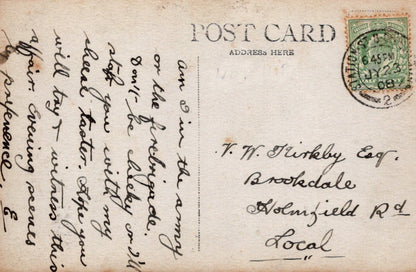 POST CARD
ADDRESS HERE
6.45 PM
JY 23
09
2
am I in the army
or the fire brigade.
Don't be cheeky or I'll
stop you with my
shoulder. Hope you
will try & witness this
affair. Evening scenes
preference. E
V. W. Kirkby Esq.
Brookdale
Holmfield Rd
Local